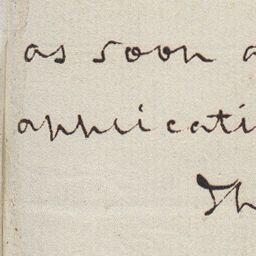 as soon a
applicati
Th